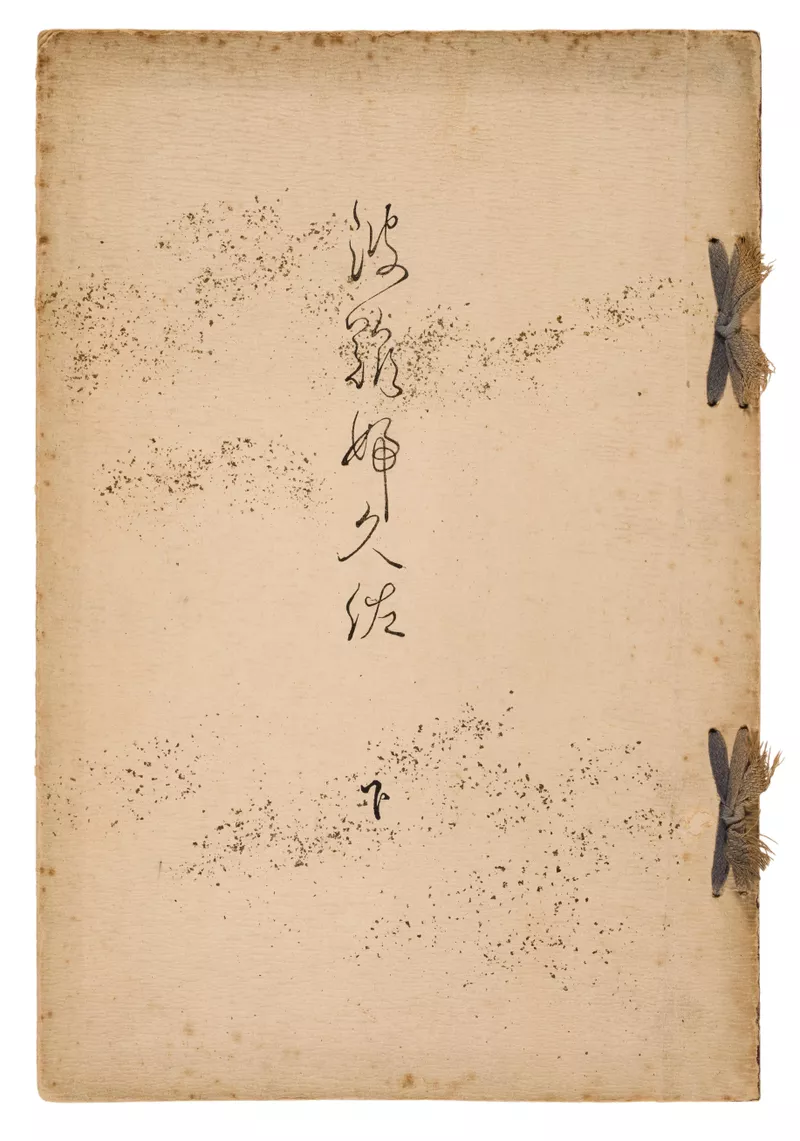 波難婦久佐
下